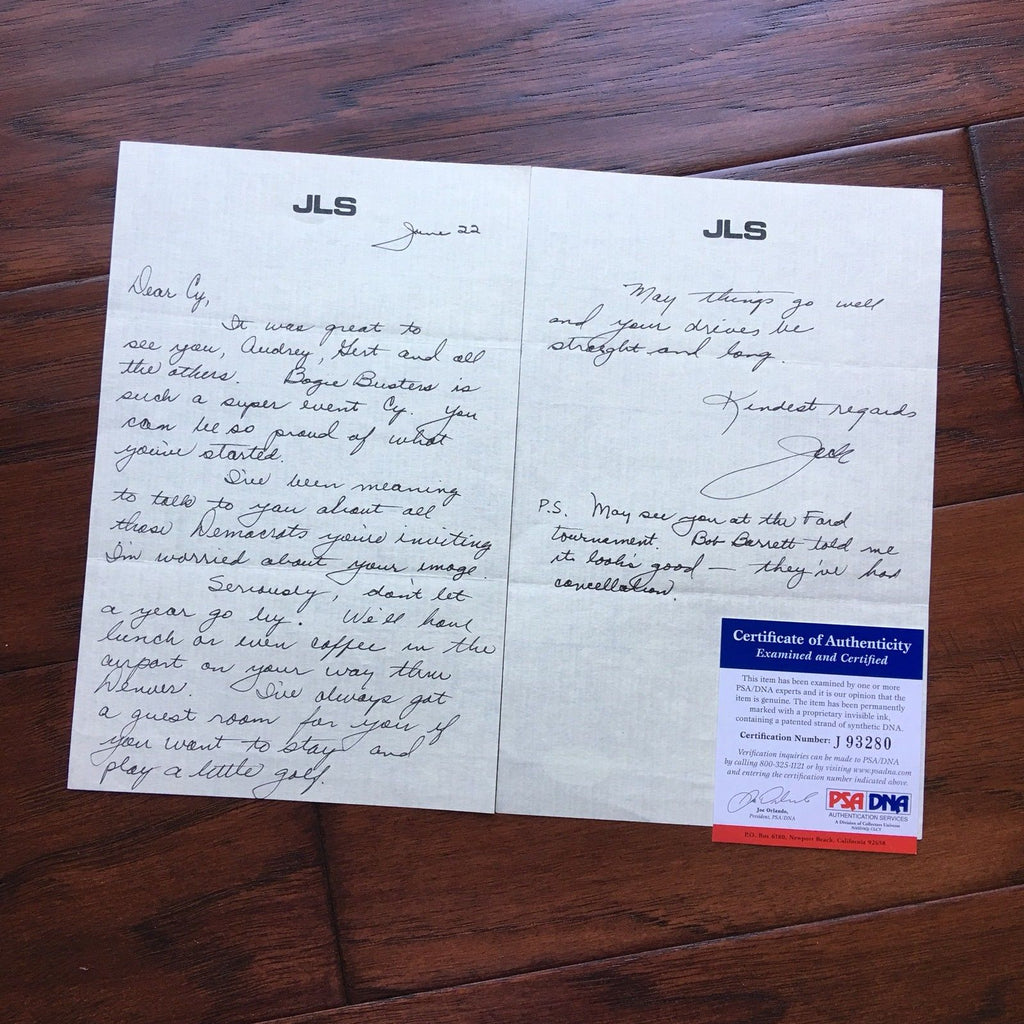 JLS
June 22
Dear Cy,
It was great to
see you, Audrey, Gert and all
the others. Bogie Busters is
such a super event Cy. You
can be so proud of what
you've started.
I've been meaning
to talk to you about all
those Democrats you're inviting
I'm worried about your image.
Seriously, don't let
a year go by. We'll have
lunch or even coffee in the
airport on your way thru
Denver. I've always got
a guest room for you if
you want to stay and
play a little golf.
JLS
May things go well
and your drives be
straight and long.
Kindest regards
Jack
P.S. May see you at the Ford
tournament. Bob Barrett told me
it looks good — they've had
cancellation.
Certificate of Authenticity
Examined and Certified
This item has been examined by one or more
PSA/DNA experts and it is our opinion that the
item is genuine. The item has been permanently
marked with a proprietary invisible ink,
containing a patented strand of synthetic DNA.
Certification Number: J 93280
Verification inquiries can be made to PSA/DNA
by calling 800-325-1121 or by visiting www.psadna.com
and entering the certification number indicated above.
Joe Orlando,
President, PSA/DNA
PSA DNA
AUTHENTICATION SERVICES
A Division of Collectors Universe
NASDAQ: CLCT
P.O. Box 6180, Newport Beach, California 92658